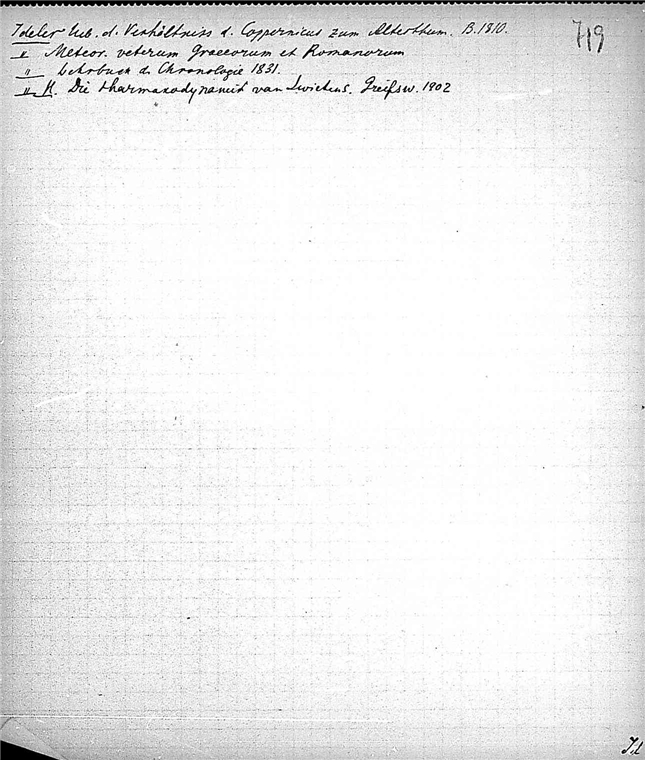 Ideler Ueb. d. Verhältniss d. Coppernicus zum Alterthum. B. 1810.
719
" Meteor. veterum Graecorum et Romanorum
" Lehrbuch d. Chronologie 1831.
" H. Die thermaxodynamik van Swietens. Greifsw. 1902
Id